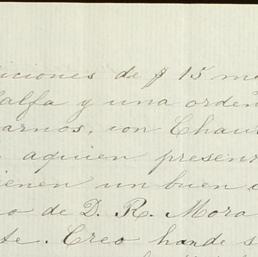 iciones de $ 15 m
alfa y una orden
arnos, con Chau
aquien presen
ienen un buen
o de D. R. Mora
te. Creo hande s